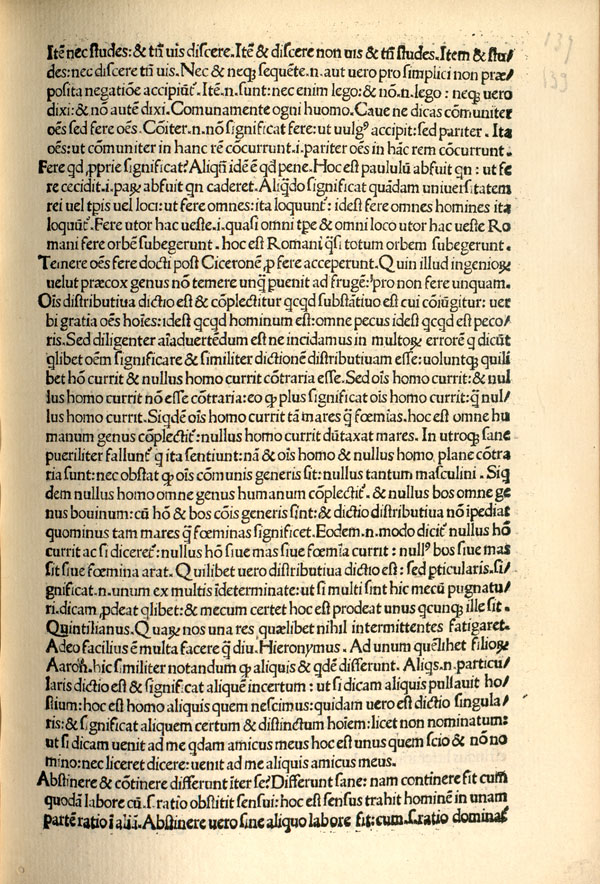 137
139
Itē nec studes: & tn̄ uis discere. Itē & discere non uis & tn̄ studes. Item & stu/
des: nec discere tn̄ uis. Nec & neqꝫ sequēte .n. aut uero pro simplici non præ/
posita negatiōe accipiūt̃. Itē .n. sunt: nec enim lego: & nō .n. lego : neqꝫ uero
dixi: & nō autē dixi. Comunamente ogni huomo. Caue ne dicas cōmuniter
oēs sed fere oēs. Cōiter .n. nō significat fere: ut uulgꝰ accipit: sed pariter . Ita
oēs: ut cōmuniter in hanc rē cōcurrunt .i. pariter oēs in hāc rem cōcurrunt .
Fere qd ꝓprie significat? Aliqñ idē ē qd pene. Hoc est paululū abfuit qn : ut fe
re cecidit .i. paꝝ abfuit qn caderet. Aliqd̃o significat quādam uniuersitatem
rei uel tp̄is uel loci: ut fere omnes: ita loquunt̃: idest fere omnes homines ita
loquūt̃. Fere utor hac ueste .i. quasi omni tp̄e & omni loco utor hac ueste Ro
mani fere orbē subegerunt . hoc est Romani q̄si totum orbem subegerunt .
Temere oēs fere docti post Ciceronē ꝓ fere acceperunt. Quin illud ingenioꝝ
uelut præcox genus nō temere unq̄ puenit ad frugē: pro non fere unquam.
Oīs distributiua dictio est & cōplectitur qcqd substātiuo est cui cōiūgitur: uer
bi gratia oēs hoīes: idest qcqd hominum est: omne pecus idest qcqd est peco/
ris. Sed diligenter aīaduertēdum est ne incidamus in multoꝝ errorē q dicūt
qlibet oēm significare & similiter dictionē distributiuam esse: uoluntqꝫ quili
bet hō currit & nullus homo currit cōtraria esse. Sed oīs homo currit: & nul
lus homo currit nō esse cōtraria: eo qꝫ plus significat oīs homo currit: q̄ nul/
lus homo currit. Siqdē oīs homo currit tā mares q̄ fœmias. hoc est omne hu
manum genus cōplectit̃: nullus homo currit dūtaxat mares. In utroqꝫ sane
pueriliter fallunt̃ q ita sentiunt: nā & oīs homo & nullus homo plane cōtra
ria sunt: nec obstat qꝫ oīs cōmunis generis sit: nullus tantum masculini . Siq
dem nullus homo omne genus humanum cōplectit̃. & nullus bos omne ge
nus bouinum: cū hō & bos cōis generis sint: & dictio distributiua nō ipediat
quominus tam mares q̄ fœminas significet. Eodem .n. modo dicit̃ nullus hō
currit ac si diceret̃: nullus hō siue mas siue fœmīa currit : nullꝰ bos siue mas
sit siue fœmina arat. Quilibet uero distributiua dictio est : sed pticularis. si/
gnificat .n. unum ex multis īdeterminate: ut si multi sint hic mecū pugnatu/
ri. dicam ꝓdeat qlibet: & mecum certet hoc est prodeat unus qcunqꝫ ille sit .
Quintilianus. Quaꝝ nos una res quælibet nihil intermittentes fatigaret.
Adeo facilius ē multa facere q̄ diu. Hieronymus. Ad unum quēlihet filioꝝ
Aaron. hic similiter notandum qꝫ aliquis & qdē differunt. Aliqs .n. particu/
laris dictio est & significat aliquē incertum : ut si dicam aliquis pulsauit ho/
stium: hoc est homo aliquis quem nescimus: quidam uero est dictio singula/
ris: & significat aliquem certum & distinctum hoīem: licet non nominatum:
ut si dicam uenit ad me qdam amicus meus hoc est unus quem scio & nō no
mino: nec liceret dicere: uenit ad me aliquis amicus meus.
Abstinere & cōtinere differunt īter se? Differunt sane: nam continere fit cum
quodā labore cū .s. ratio obstitit sensui: hoc est sensus trahit hominē in unam
partē ratio ī aliā. Abstinere uero sine aliquo labore fit: cum .s. ratio dominat̃